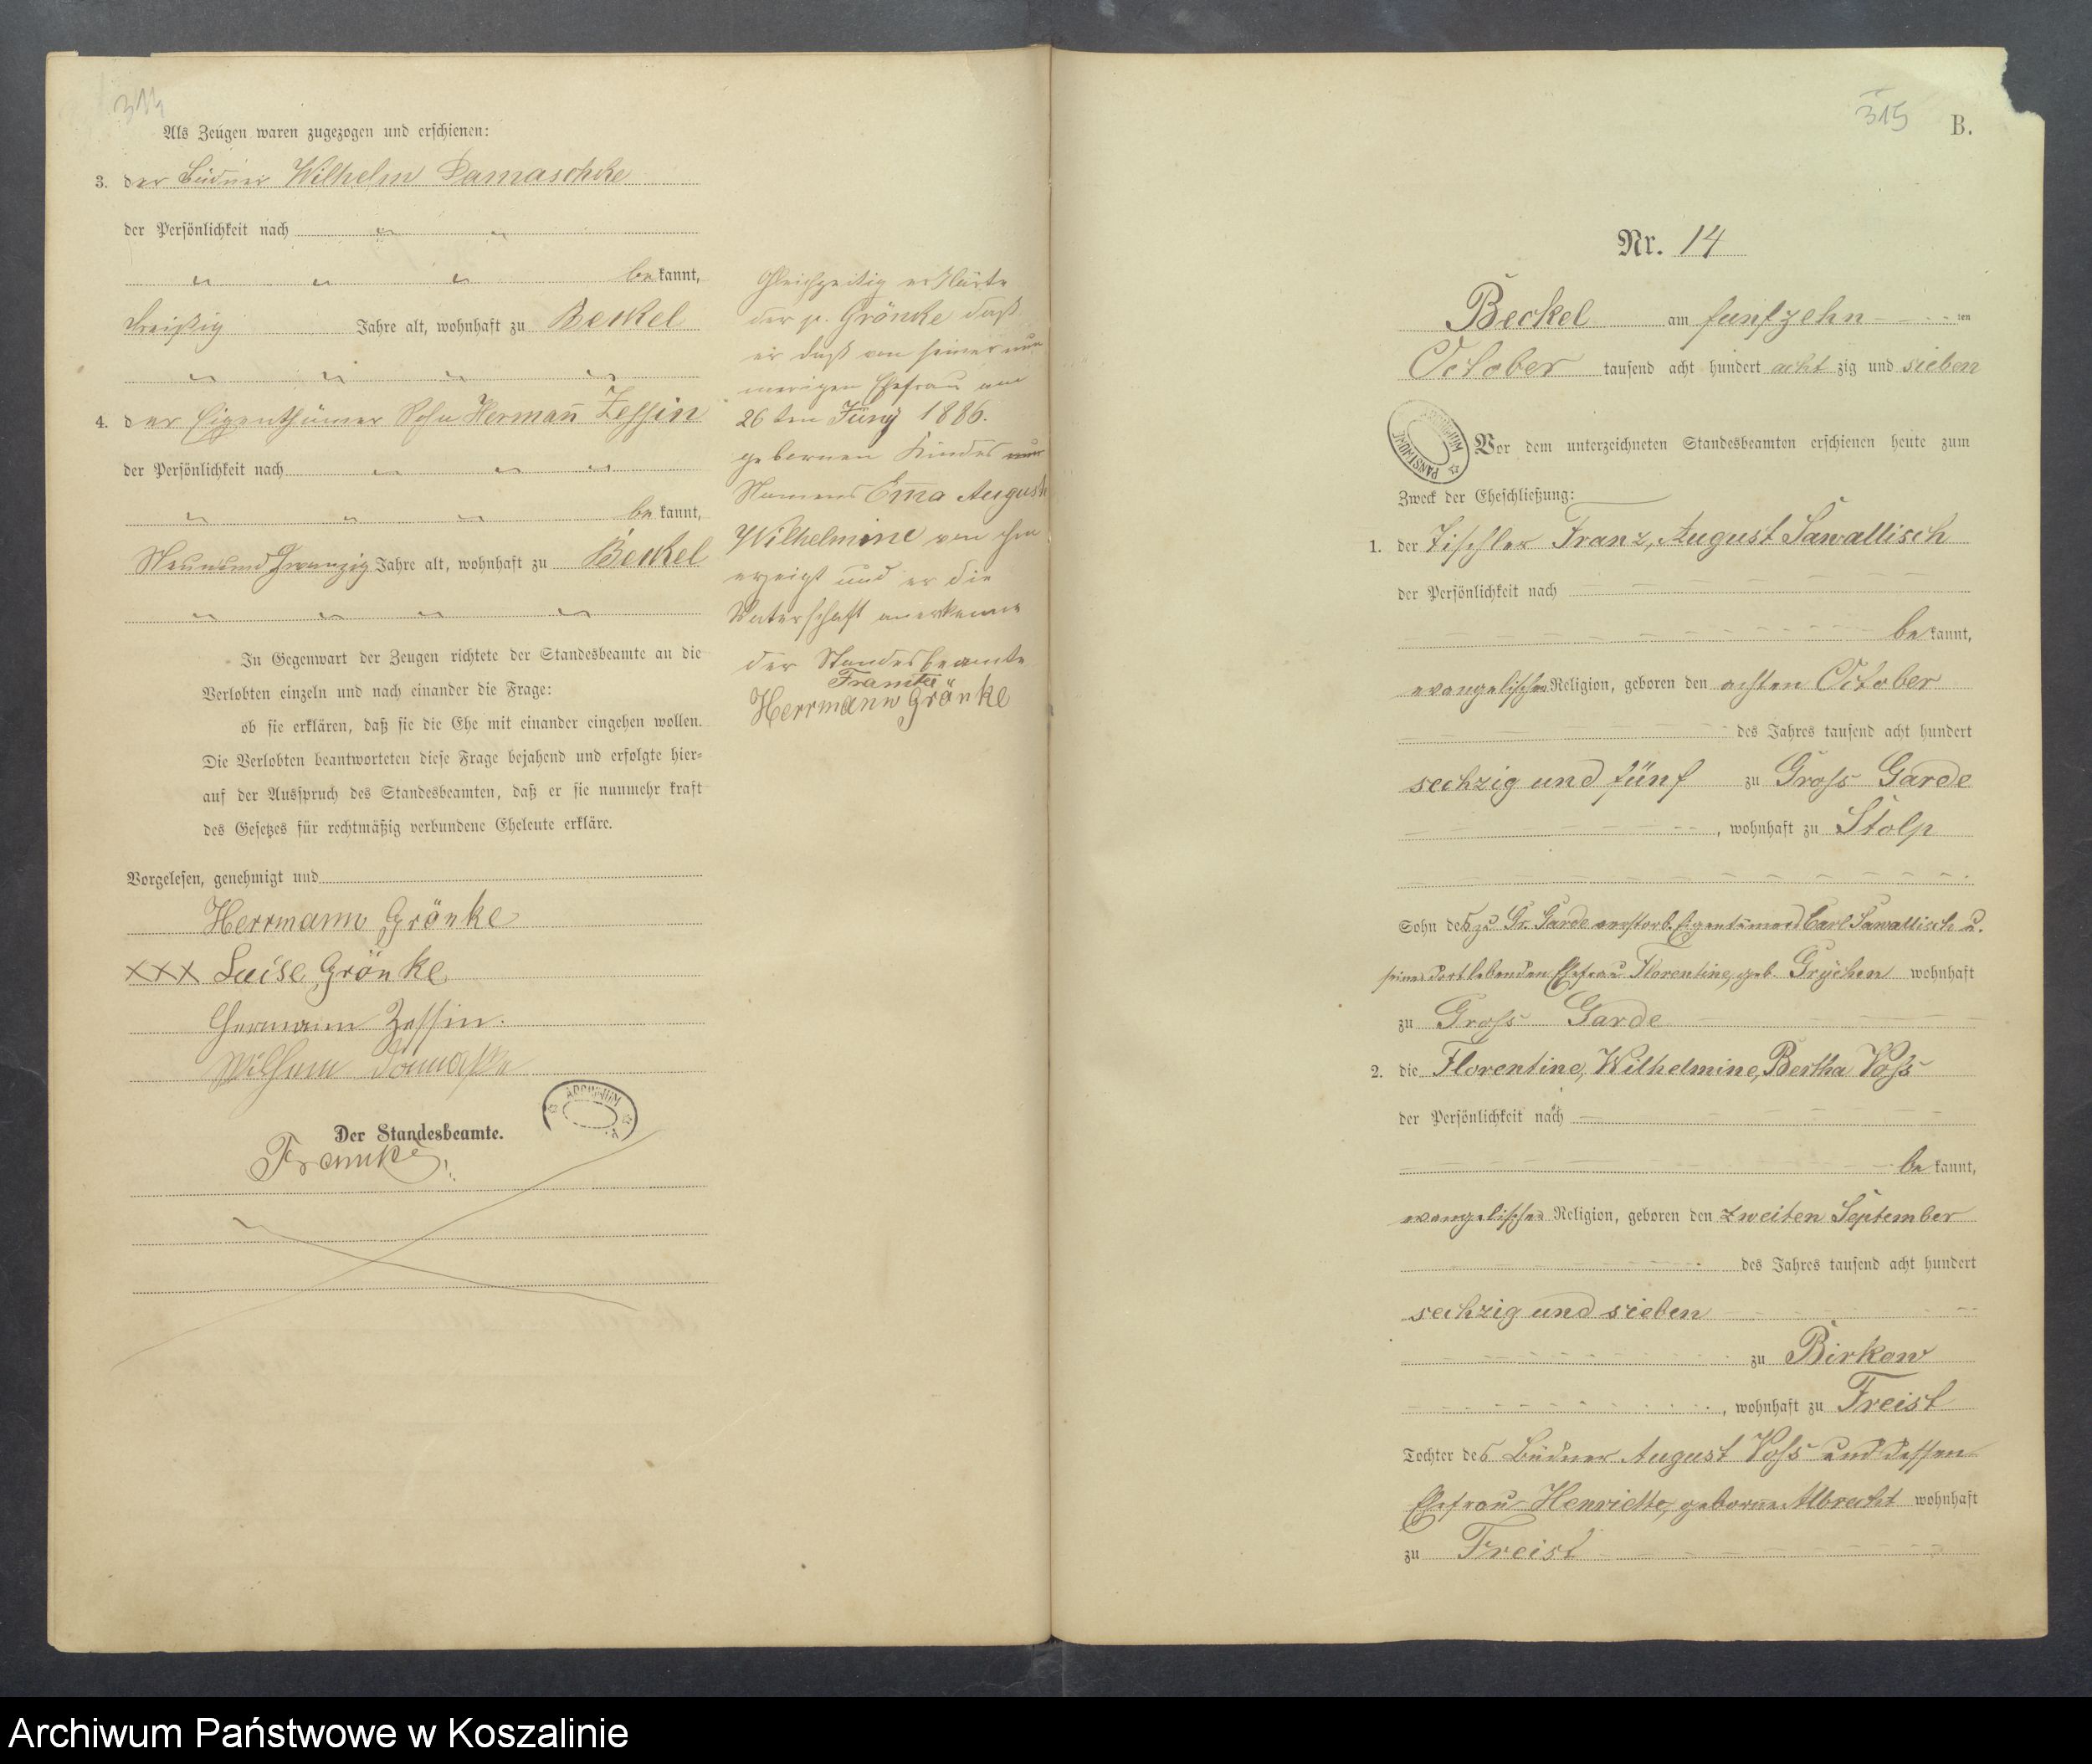 314
Als Zeugen waren zugezogen und erschienen:
3. der Büdner Wilhelm Damaschke
der Persönlichkeit nach
bekannt,
dreißig Jahre alt, wohnhaft zu Beckel
4. der Eigenthümer Sohn Hermañ Zessin
der Persönlichkeit nach
bekannt,
Neunund Zwanzig Jahre alt, wohnhaft zu Beckel
In Gegenwart der Zeugen richtete der Standesbeamte an die
Verlobten einzeln und nach einander die Frage:
ob sie erklären, daß sie die Ehe mit einander eingehen wollen.
Die Verlobten beantworteten diese Frage bejahend und erfolgte hier-
auf der Ausspruch des Standesbeamten, daß er sie nunmehr kraft
des Gesetzes für rechtmäßig verbundene Eheleute erkläre.
Vorgelesen, genehmigt und
Herrmann Grönke
XXX Luise Grönke
Hermann Zessin.
Wilhem Damaske
ARCHIWUM
Der Standesbeamte.
Framke
Gleichzeitig erklärte
der p. Grönke daß
er daß von seiner nun
merigen Ehefrau am
26ten Juny 1886.
gebornen Kindes
Namens Em̄a Auguste
Wilhelmine von ihm
erzeigt und er die
Vaterschaft anerkenne
der Standesbeamte
Framke
Herrmann Grönke
315
B.
Nr. 14
Beckel am funfzehn ten
October tausend acht hundert achtzig und sieben
ARCHIWUM PAŃSTWOWE
Vor dem unterzeichneten Standesbeamten erschienen heute zum
Zweck der Eheschließung:
1. der Tischler Franz, August Sawallisch
der Persönlichkeit nach
bekannt,
evangelischer Religion, geboren den achten October
des Jahres tausend acht hundert
sechzig und fünf zu Gross Garde
, wohnhaft zu Stolp
Sohn des zu Gr. Garde verstorb. Eigentümers Carl Sawallisch u.
seiner dort lebenden Ehefrau Florentine, geb. Grychen wohnhaft
zu Gross Garde
2. die Florentine, Wilhelmine, Bertha Voss
der Persönlichkeit nach
bekannt,
evangelischer Religion, geboren den zweiten September
des Jahres tausend acht hundert
sechzig und sieben
zu Birkow
, wohnhaft zu Freist
Tochter des Büdner August Voss und dessen
Ehefrau Henriette, geborne Albrecht wohnhaft
zu Freist
Archiwum Państwowe w Koszalinie